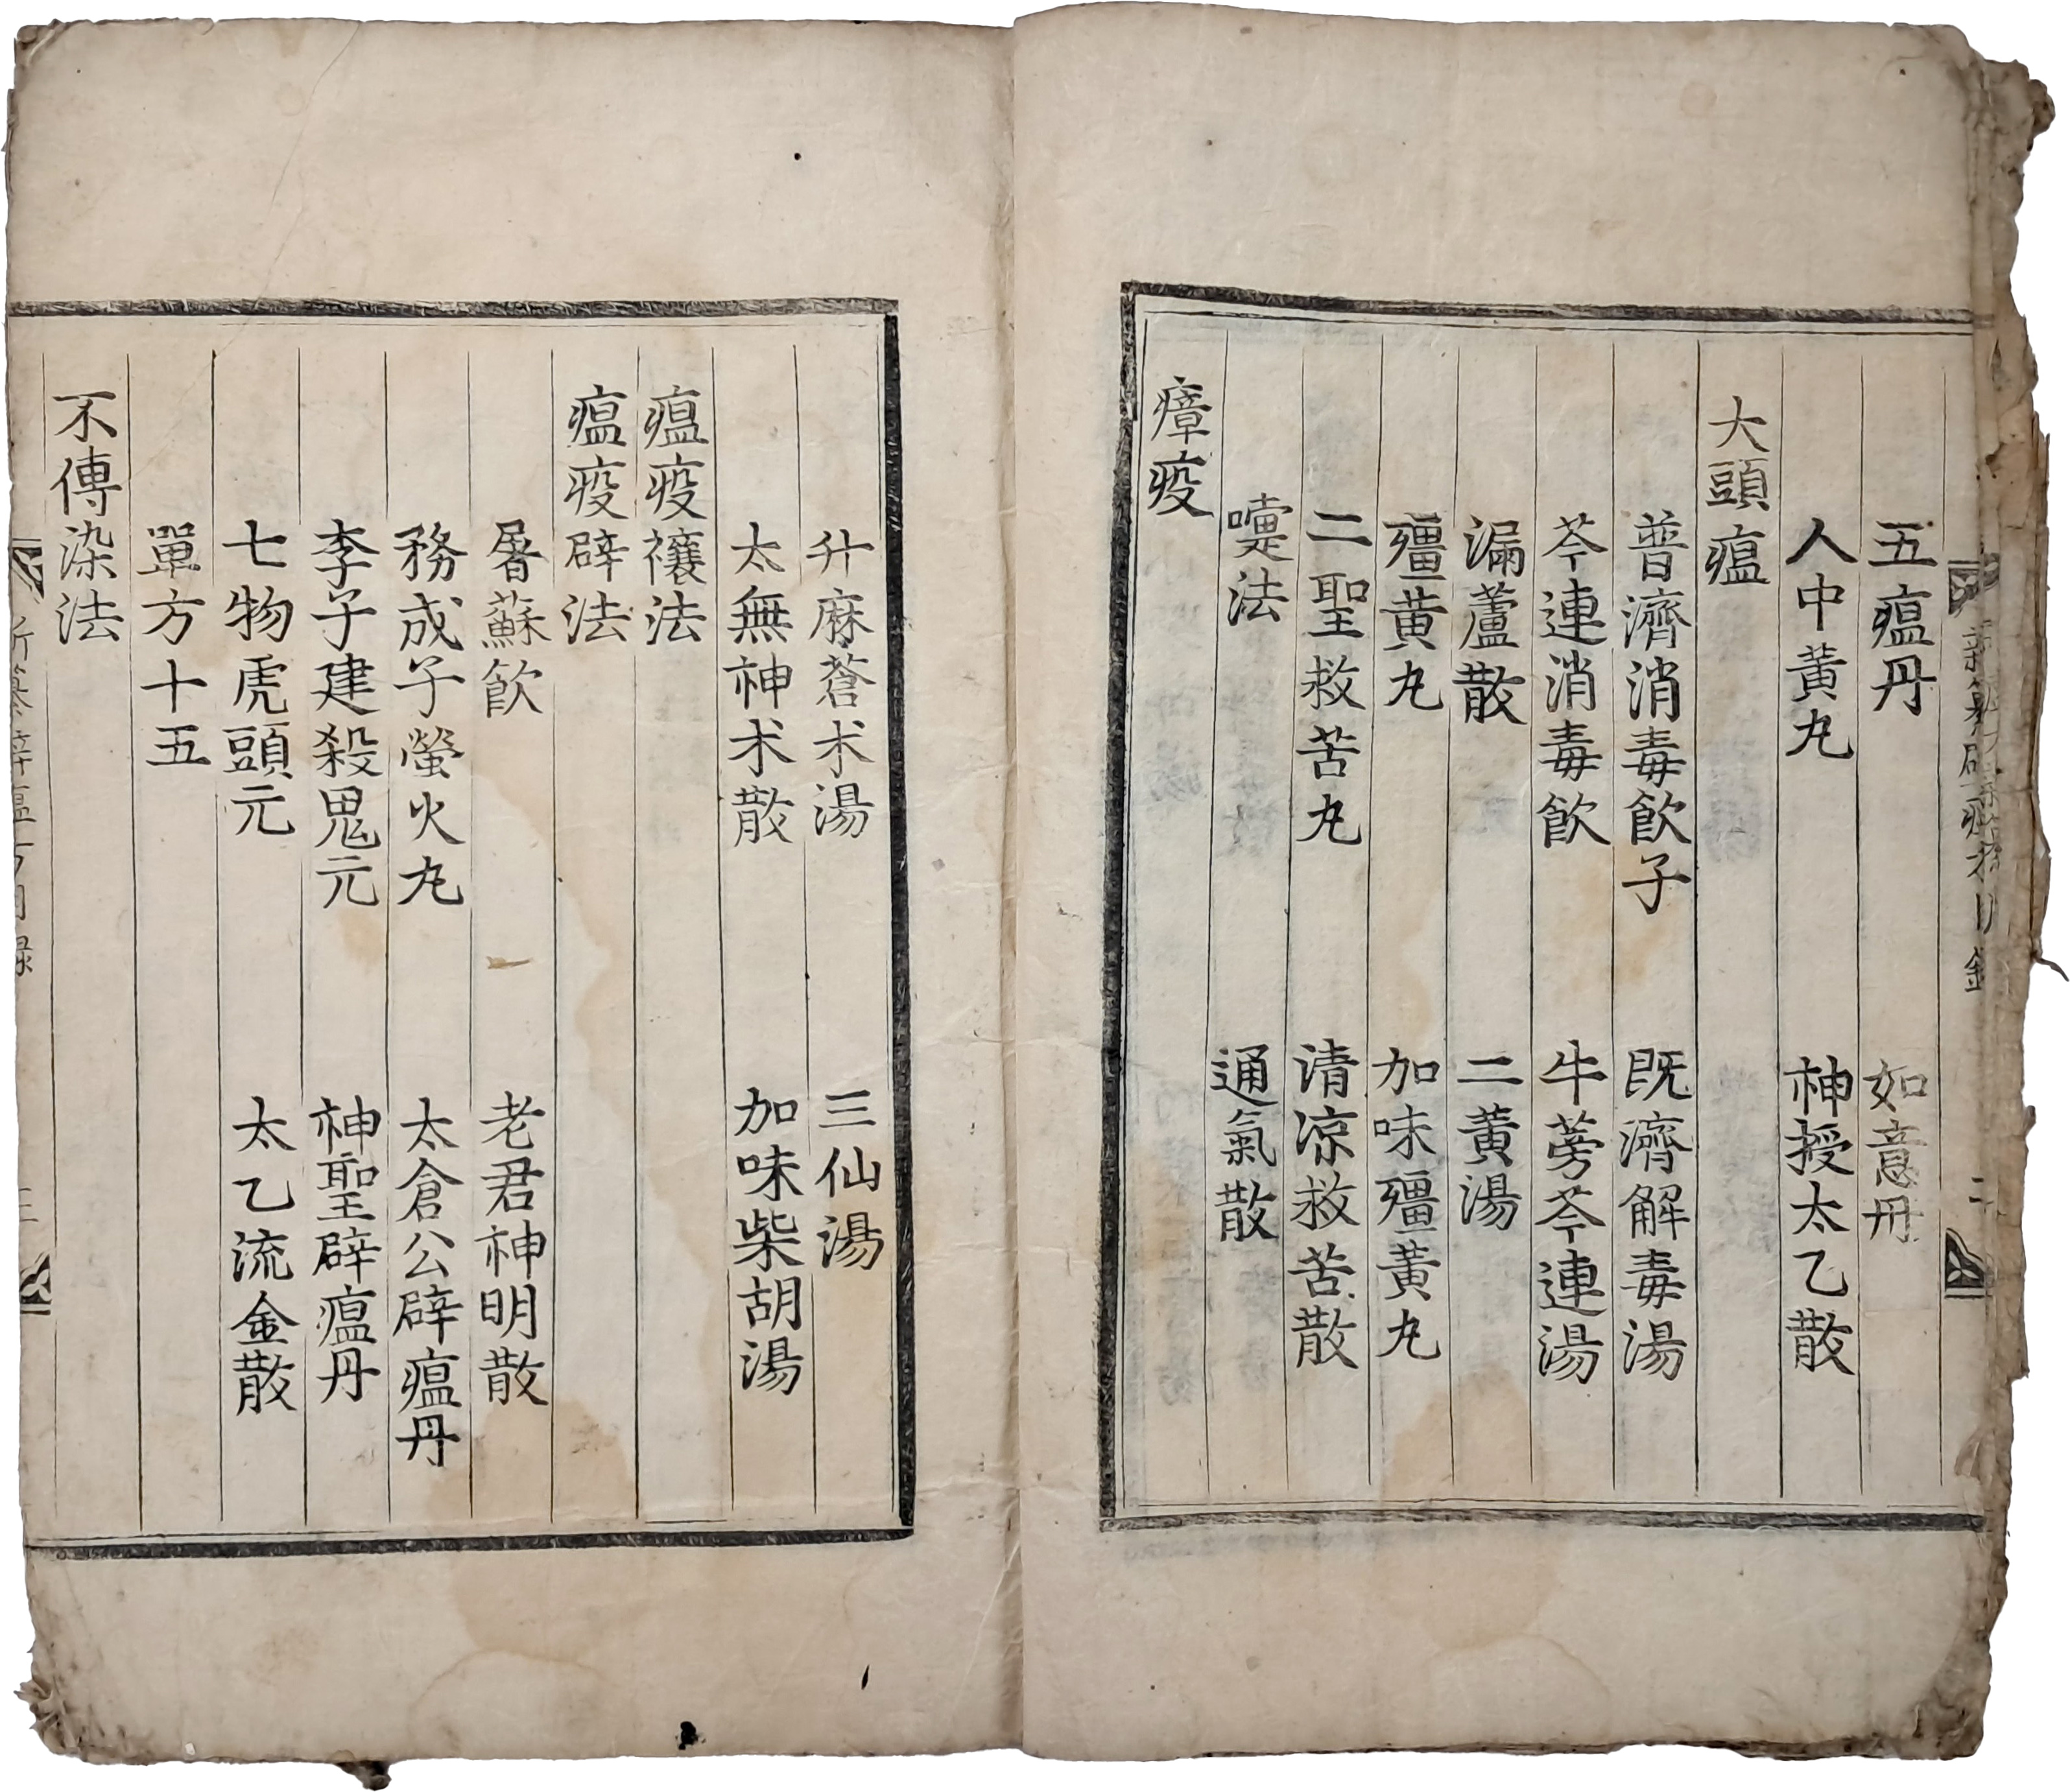 五瘟丹 如意丹
人中黃丸 神授太乙散
大頭瘟
普濟消毒飮子 旣濟解毒湯
芩連消毒飮 牛蒡芩連湯
漏蘆散 二黃湯
殭黃丸 加味殭黃丸
二聖救苦丸 清凉救苦散
嚏法 通氣散
瘴疫
升麻蒼朮湯 三仙湯
太無神朮散 加味柴胡湯
瘟疫禳法
瘟疫辟法
屠蘇飮 老君神明散
務成子螢火丸 太倉公辟瘟丹
李子建殺鬼元 神聖辟瘟丹
七物虎頭元 太乙流金散
單方十五
不傳染法